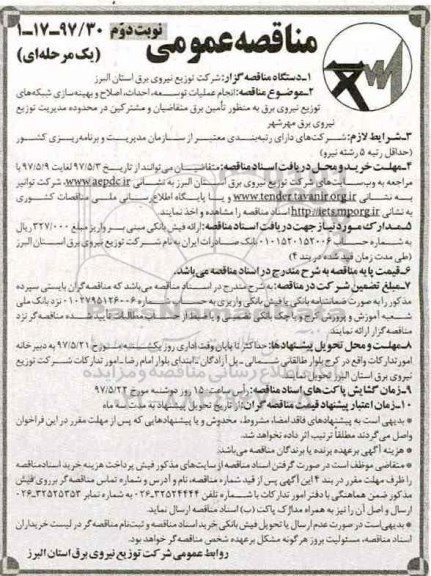 نوبت دوم
۱-۱۷-۹۷/۳۰
مناقصه عمومی
(یک مرحله‌ای)
۱-دستگاه مناقصه گزار: شرکت توزیع نیروی برق استان البرز
۲-موضوع مناقصه: انجام عملیات توسعه، احداث، اصلاح و بهینه‌سازی شبکه‌های
توزیع نیروی برق به منظور تأمین برق متقاضیان و مشترکین در محدوده مدیریت توزیع
نیروی برق مهرشهر
۳-شرایط لازم: شرکت‌های دارای رتبه‌بندی معتبر از سازمان مدیریت و برنامه‌ریزی کشور
(حداقل رتبه ۵ رشته نیرو)
۴-مهلت خرید و محل دریافت اسناد مناقصه: متقاضیان می‌توانند از تاریخ ۹۷/۵/۳ لغایت ۹۷/۵/۹ با
مراجعه به وب‌سایت‌های شرکت توزیع نیروی برق استان البرز به نشانی www.aepdc.ir، شرکت توانیر
به نشانی www.tender.tavanir.org.ir و یا پایگاه اطلاع رسانی ملی مناقصات کشوری
به نشانی http://iets.mporg.ir اسناد مناقصه را مشاهده و اخذ نمایند.
۵-مدارک مورد نیاز جهت دریافت اسناد مناقصه: ارائه فیش بانکی مبنی بر واریز مبلغ ۳۲۷/۰۰۰ ریال
به شماره حساب ۰۱۰۱۵۲۰۱۵۲۰۰۶ بانک صادرات ایران به نام شرکت توزیع نیروی برق استان البرز
(طی مدت زمان قید شده در بند ۴)
۶-قیمت پایه مناقصه به شرح مندرج در اسناد مناقصه می‌باشد.
۷-مبلغ تضمین شرکت در مناقصه: به شرح مندرج در اسناد مناقصه می‌باشد که مناقصه‌گران بایستی سپرده
مذکور را به صورت ضمانتنامه بانکی یا فیش بانکی واریزی به حساب شماره ۰۱۰۲۷۹۵۱۲۶۰۰۶ نزد بانک ملی
شعبه آموزش و پرورش کرج و یا چک بانکی تضمینی و یا ضبط از محل مطالبات تایید شده مناقصه‌گر نزد
مناقصه گزار ارائه نمایند.
۸-مهلت و محل تحویل پیشنهادها: حداکثر تا پایان وقت اداری روز یکشنبه مورخ ۹۷/۵/۲۱ به دبیرخانه
امور تدارکات واقع در کرج بلوار طالقانی شمالی-پل آزادگان-ابتدای بلوار امام رضا-امور تدارکات شرکت توزیع
نیروی برق استان البرز تحویل نمایند.
۹-زمان گشایش پاکت‌های اسناد مناقصه: رأس ساعت ۱۵ روز دوشنبه مورخ ۹۷/۵/۲۲
۱۰-زمان اعتبار پیشنهاد قیمت مناقصه گران: از تاریخ تحویل پیشنهاد به مدت سه ماه
* بدیهی است به پیشنهادهای فاقد امضاء، مشروط، مخدوش و یا پیشنهادهایی که پس از مهلت مقرر در این فراخوان
واصل می‌گردند مطلقاً ترتیب اثر داده نخواهد شد.
* هزینه آگهی برعهده برنده یا برندگان مناقصه می‌باشد.
* متقاضی موظف است در صورت گرفتن اسناد مناقصه از سایت‌های مذکور فیش پرداخت هزینه خرید اسناد مناقصه
را ظرف مهلت مقرر در بند ۴ این آگهی پس از قید شماره مناقصه، نام و آدرس و شماره تماس مناقصه‌گر بر روی فیش
مذکور ضمن هماهنگی با دفتر امور تدارکات با شماره تلفن ۳۲۵۲۴۴۴۴-۰۲۶ به شماره نمابر ۳۲۵۲۵۳۵۳-۰۲۶
ارسال و اصل آن را نیز به همراه مدارک پاکت (ب) اسناد مناقصه ارسال نماید.
* بدیهی است در صورت عدم ارسال یا تحویل فیش بانکی خرید اسناد مناقصه و ثبت نام مناقصه گر در لیست خریداران
اسناد مناقصه، مسئولیت بروز هرگونه مشکل برعهده شخص مناقصه‌گر خواهد بود.
روابط عمومی شرکت توزیع نیروی برق استان البرز